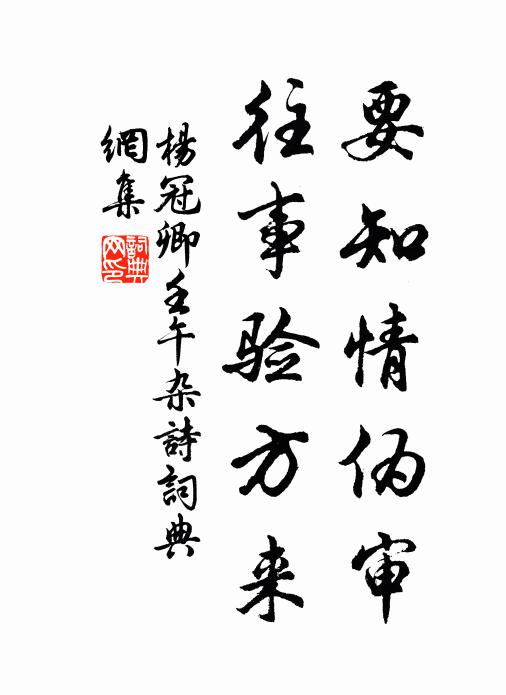 要知情伪审
往事验方来
楊冠卿壬午杂詩詞典
網集
詞典網印